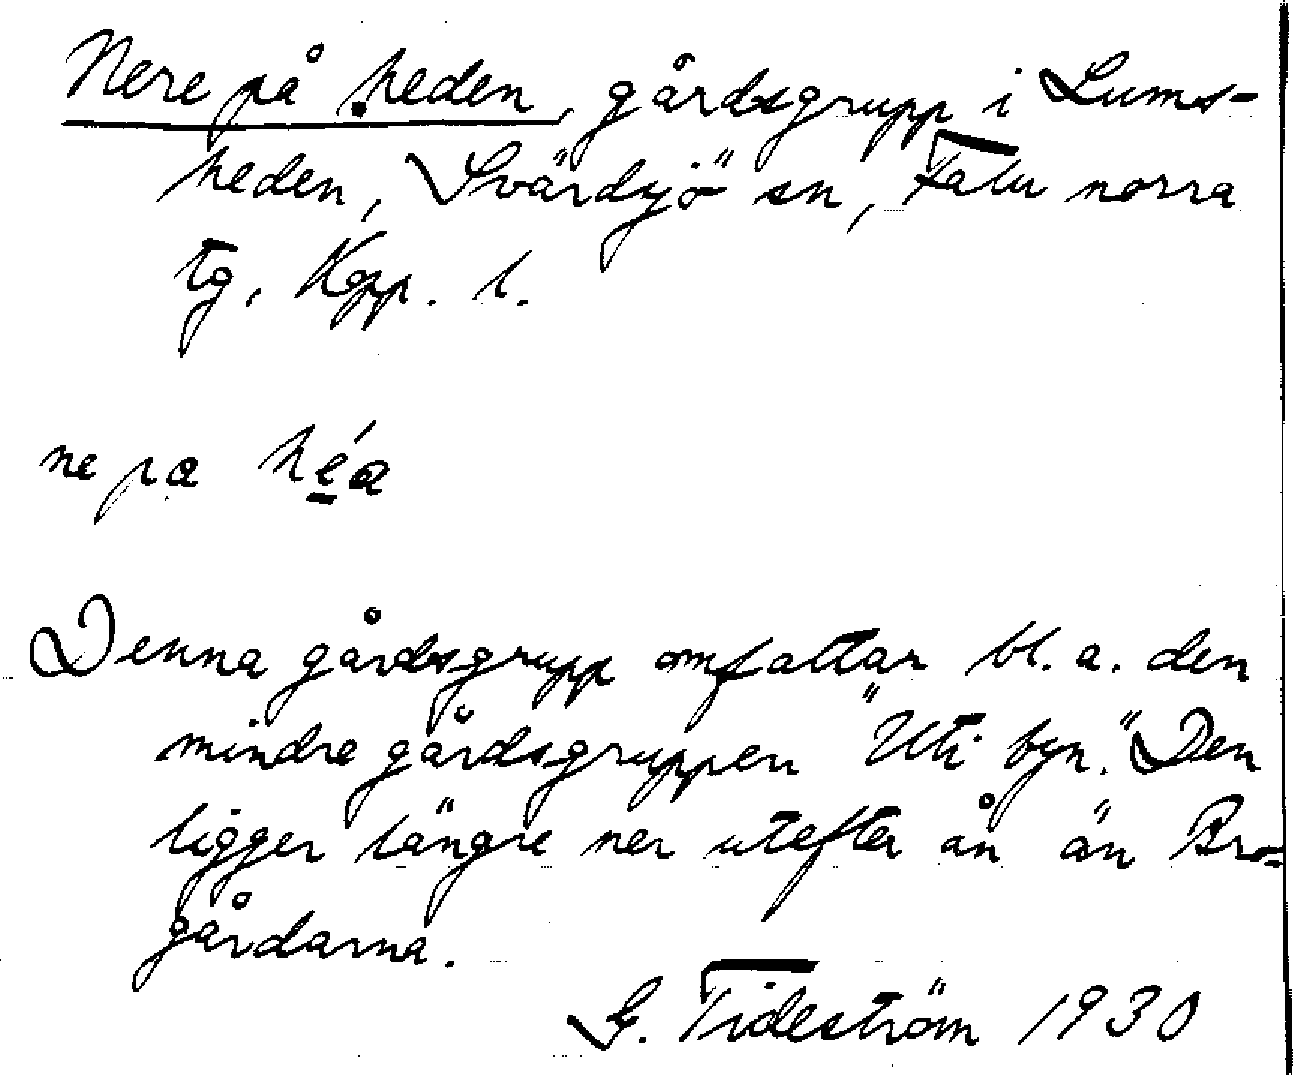 Nere på heden, gårdsgrupp i Lums-
heden, Svärdsjö sn, Falu norra
tg, Kopp. l.
ne pa héa
Denna gårdsgrupp omfattar bl. a. den
mindre gårdsgruppen "Uti byn." Den
ligger längre ner utefter ån än Bro-
gårdarna.
G. Tideström 1930